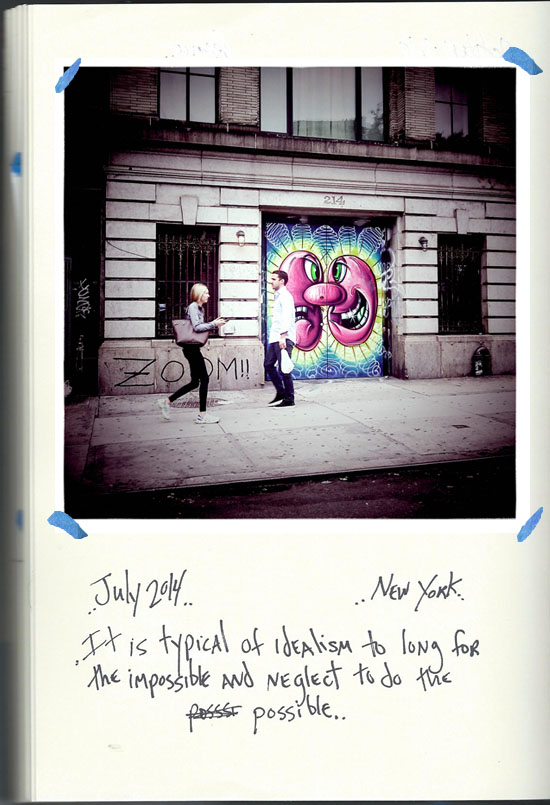 214
ZOOM!!
July 2014..
..New York..
It is typical of idealism to long for
the impossible and neglect to do the
possible..